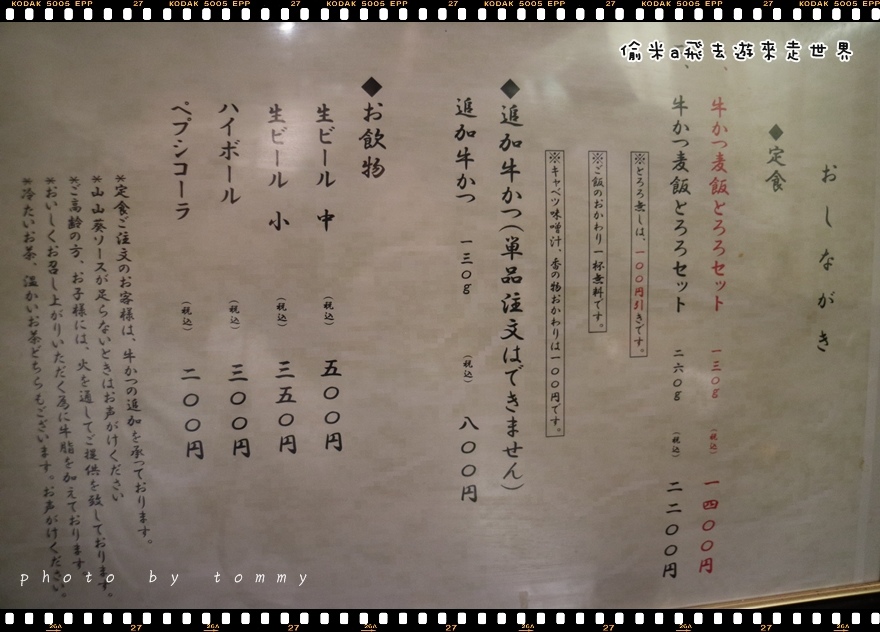 KODAK 5005 EPP 27 KODAK 5005 EPP 27 KODAK 5005 EPP 27 KODAK 5005 EPP 27 KODAK 5005 EPP 27 KODAK
偷米a飛去遊來走世界
おしながき
◆定食
牛かつ麦飯とろろセット 一三〇g (税込) 一四〇〇円
牛かつ麦飯とろろセット 二六〇g (税込) 二二〇〇円
※とろろ無しは、一〇〇円引きです。
※ご飯のおかわり一杯無料です。
※キャベツ味噌汁、香の物おかわりは一〇〇円です。
◆追加牛かつ(単品注文はできません)
追加牛かつ 一三〇g (税込) 八〇〇円
◆お飲物
生ビール 中 (税込) 五〇〇円
生ビール 小 (税込) 三五〇円
ハイボール (税込) 三〇〇円
ペプシコーラ (税込) 二〇〇円
*定食ご注文のお客様は、牛かつの追加を承っております。
*山山葵ソースが足らないときはお声がけください
*ご高齢の方、お子様には、火を通してご提供を致しております。
*おいしくお召し上がりいただく為に牛脂を加えております。
*冷たいお茶、温かいお茶どちらもございます。お声がけください。
photo by tommy
26A 27 26A 27 26A 27 26A 27 26A 27 26A